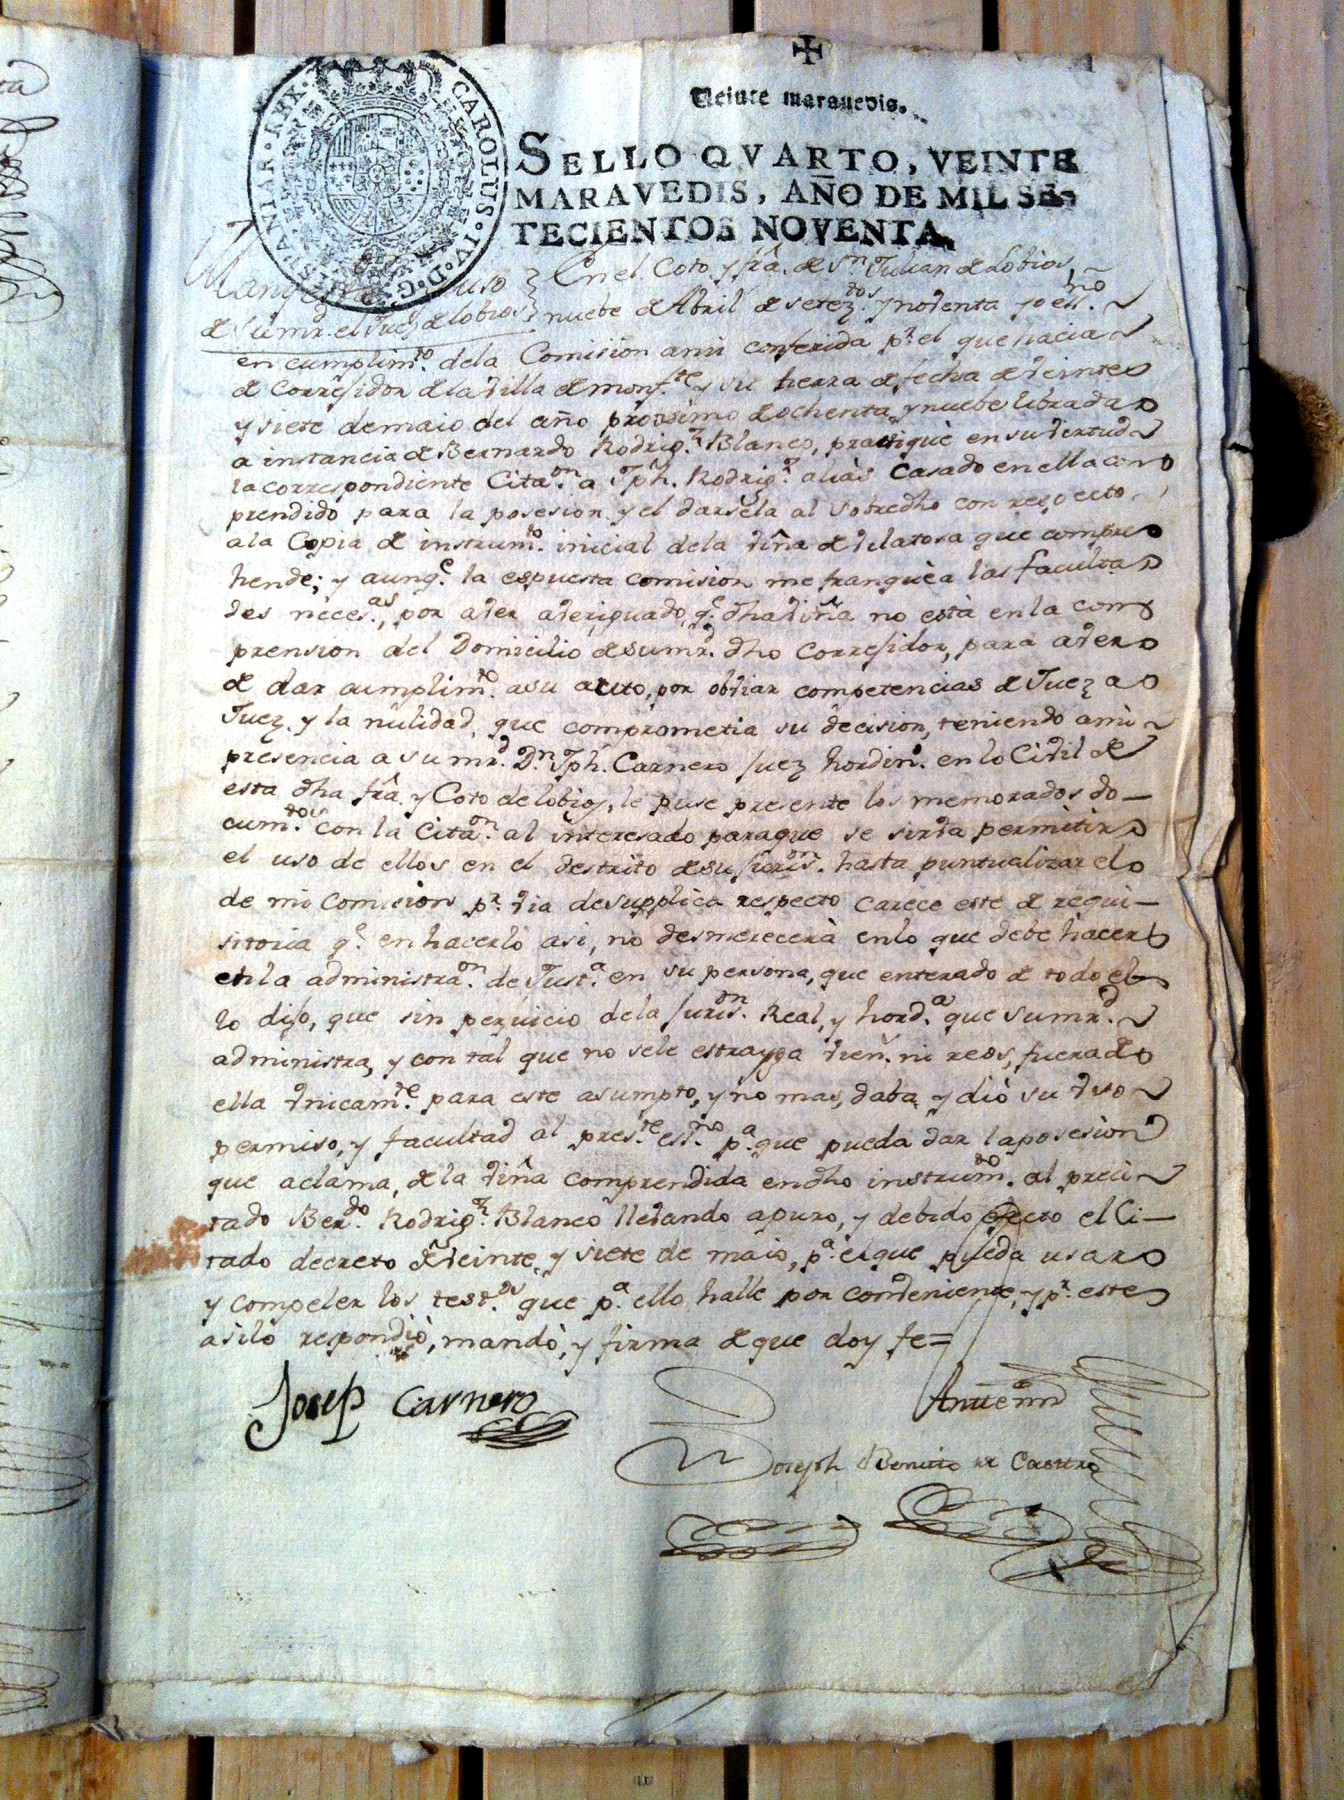 ✠
Veinte maravedis.
CAROLUS · IV · D · G · HISPANIAR · REX ·
SELLO QVARTO, VEINTE
MARAVEDIS, AÑO DE MIL SE-
TECIENTOS NOVENTA.
uso } En el Coto y frâ. de Sn. Julian de Lobios,
de Sumrd. el Juez de lobios } nuebe de Abril de setez.tos y noventa yo ess.no
en cumplim.to dela Comision ami conferida pr. el que hacia
de Corregidor de la villa de monf.te y su tierra de fecha de veinte
y siete de maio del año provsimo de ochenta y nuebe librada
a instancia de Bernardo Rodrig.z Blanco, practiquè en su vertud
la correspondiente Cita.on a Jph. Rodrig.z aliàs Casado en ella con
prendido para la posesion y el darsela al sobredho con respecto
ala Copia de instrum.to inicial dela viña de vilarosa que compre
hende; y aunq.e la espuesta comision me franquèa las faculta
des neces.as, por aver averiguado, q.e dha viña no està en la com
prension del Domicilio de sumrd. dho Corregidor, para aver
de dar cumplim.to asu auto, por obviar competencias de Juez a
Juez, y la nulidad, que comprometia su decision, teniendo ami
presencia a sumrd. Dn. Jph. Carnero Juez hordin.o en lo Civil de
esta dha frâ. y Coto de lobios, le puse presente los memorados do-
cum.tos con la Cita.on al interesado paraque se sirva permitir
el uso de ellos en el destrito de su Juris.on hasta puntualizar el
de mi Comision pr. via desupplica respecto carece este de requi-
sitoria q.e en hacerlo asi, no desmerecerà enlo que debe hacer
en la administra.on de Just.a en su persona, que enterado de todo el
lo dijo, que sin perjuicio dela Juris.on Real, y hord.a que sumr.d
administra, y con tal que no sele estrayga vien. ni reos, fuera de
ella vnicam.te para este asumpto, y no mas, daba y diò su vso
permiso, y facultad al pres.te ess.no p.a que pueda dar la posesion
que aclama, de la viña comprendida en dho instrum.to al preci
tado Ber.do Rodrig.z Blanco llevando apuro, y debido efecto el Ci-
tado decreto de veinte y siete de maio, p.a el que pueda usar
y compeler los test.os que p.a ello halle por conveniente, y pr. este
asilo respondiò, mandò, y firma de que doy fe=
Josep Carnero
Antemi
Joseph Benito de Castro